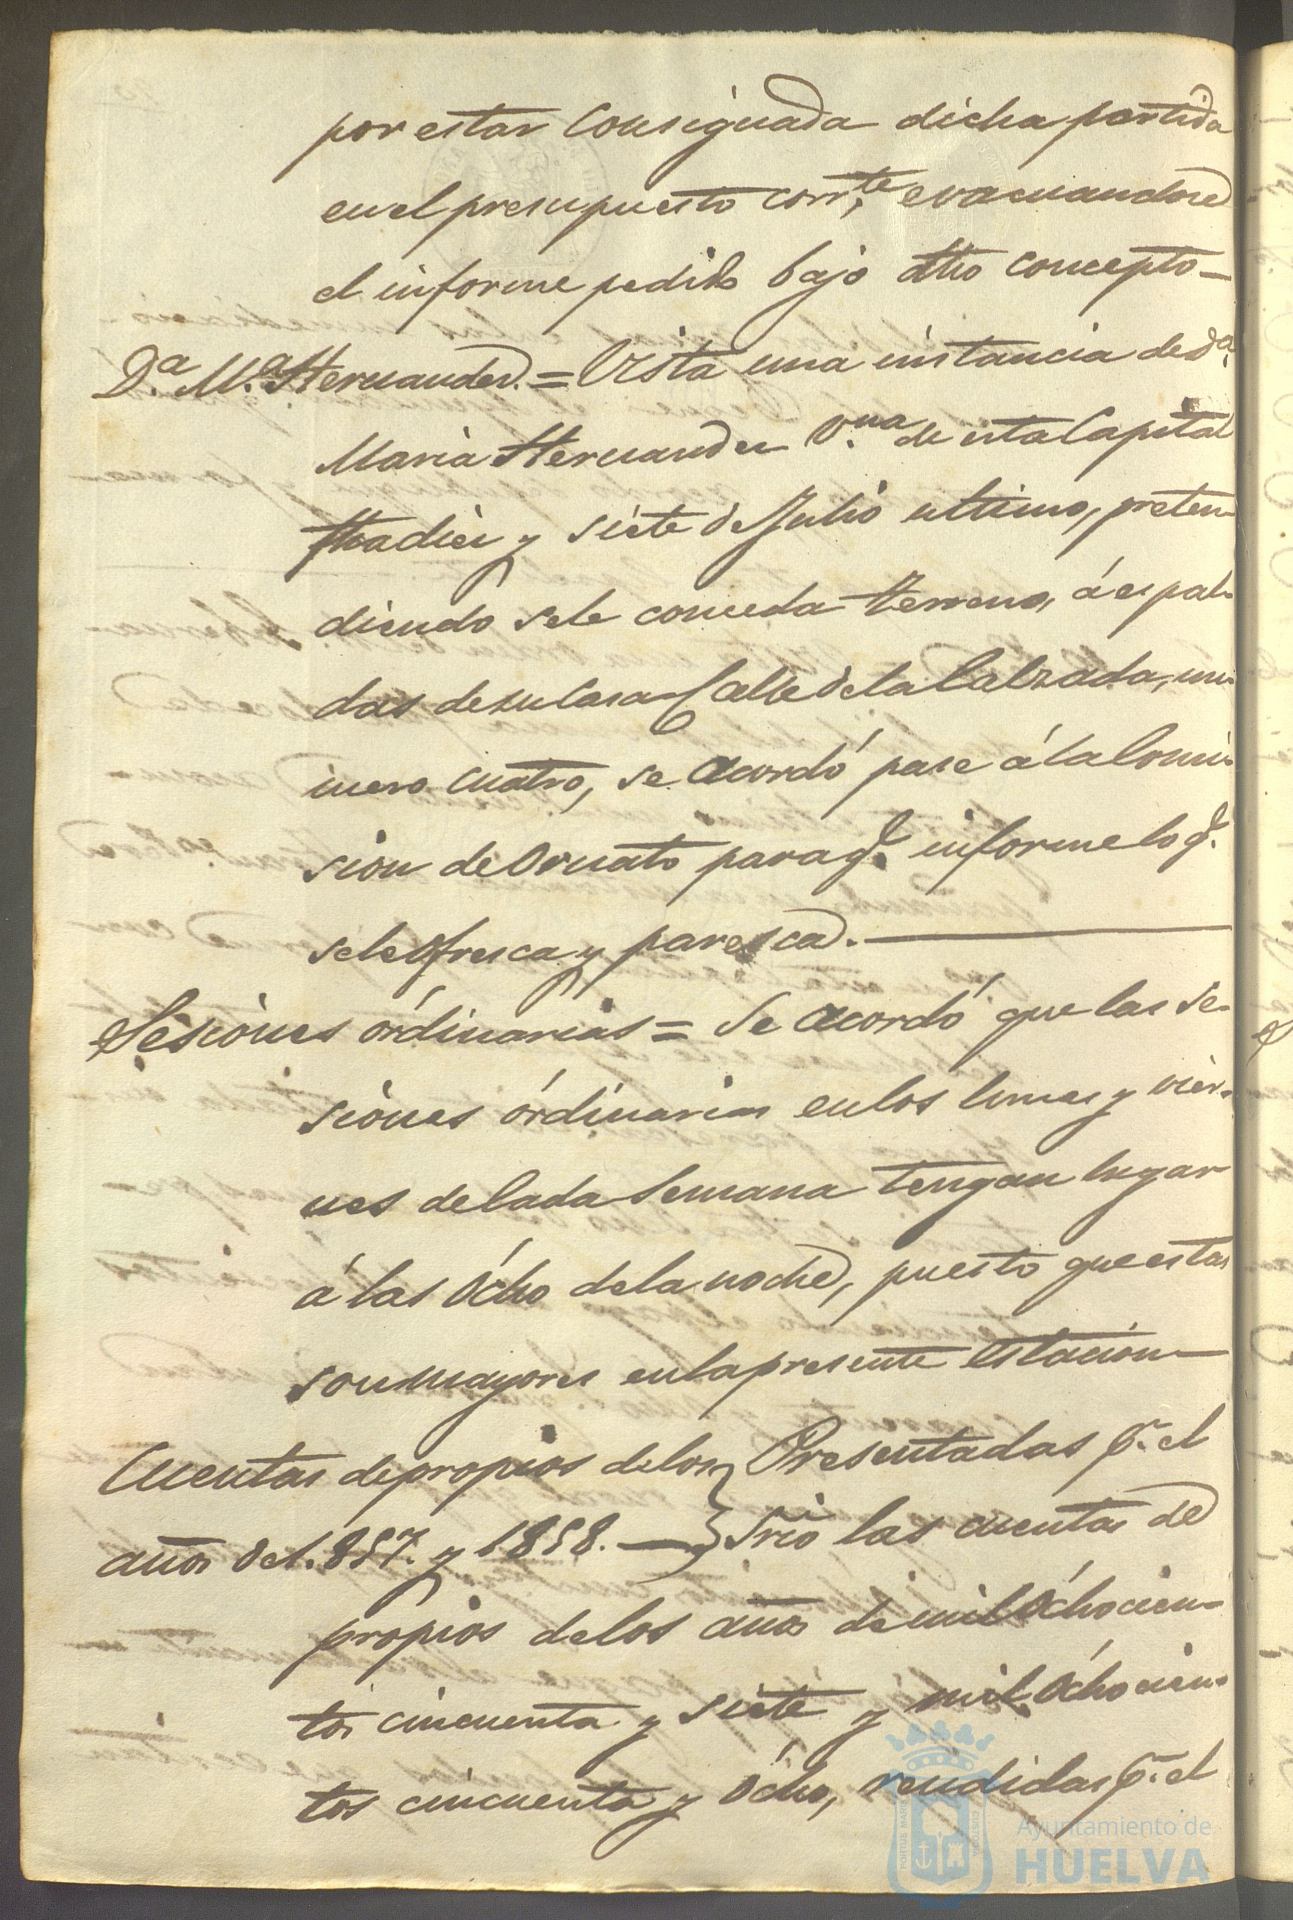 por estar Consignada dicha partida
en el presupuesto corr.te evacuandose
el informe pedido bajo dho concepto—
D.a M.a Hernandez. = Vista una instancia de D.a
Maria Hernandez V.na de esta Capital
fha diez y siete de Julio ultimo, preten-
diendo se le conceda terreno, á espal-
das de su Casa Calle de la Calzada, nu-
mero cuatro, se acordó pase á la Comi-
sion de Ornato para q.e informe lo q.e
se le Ofresca y paresca.
Sesiónes órdinarias = Se acordó que las se-
siónes órdinarias en los lunes y vier-
nes de Cada Semana tengan lugar
á las Ócho de la noche, puesto que estas
son mayores en la presente estación—
Cuentas de propios de los } Presentadas p.r el
años de 1.857. y 1858. — } Srio las cuentas de
propios de los años de mil Óchocien-
tos cincuenta y siete y mil Óchocien-
tos cincuenta y Ócho, rendidas p.r el
Ayuntamiento de
HUELVA